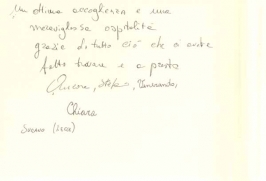 Un ottima accoglienza e una
meravigliosa ospitalità
grazie di tutto ciò che ci avete
fatto trovare e a presto
Stefano,
Chiara